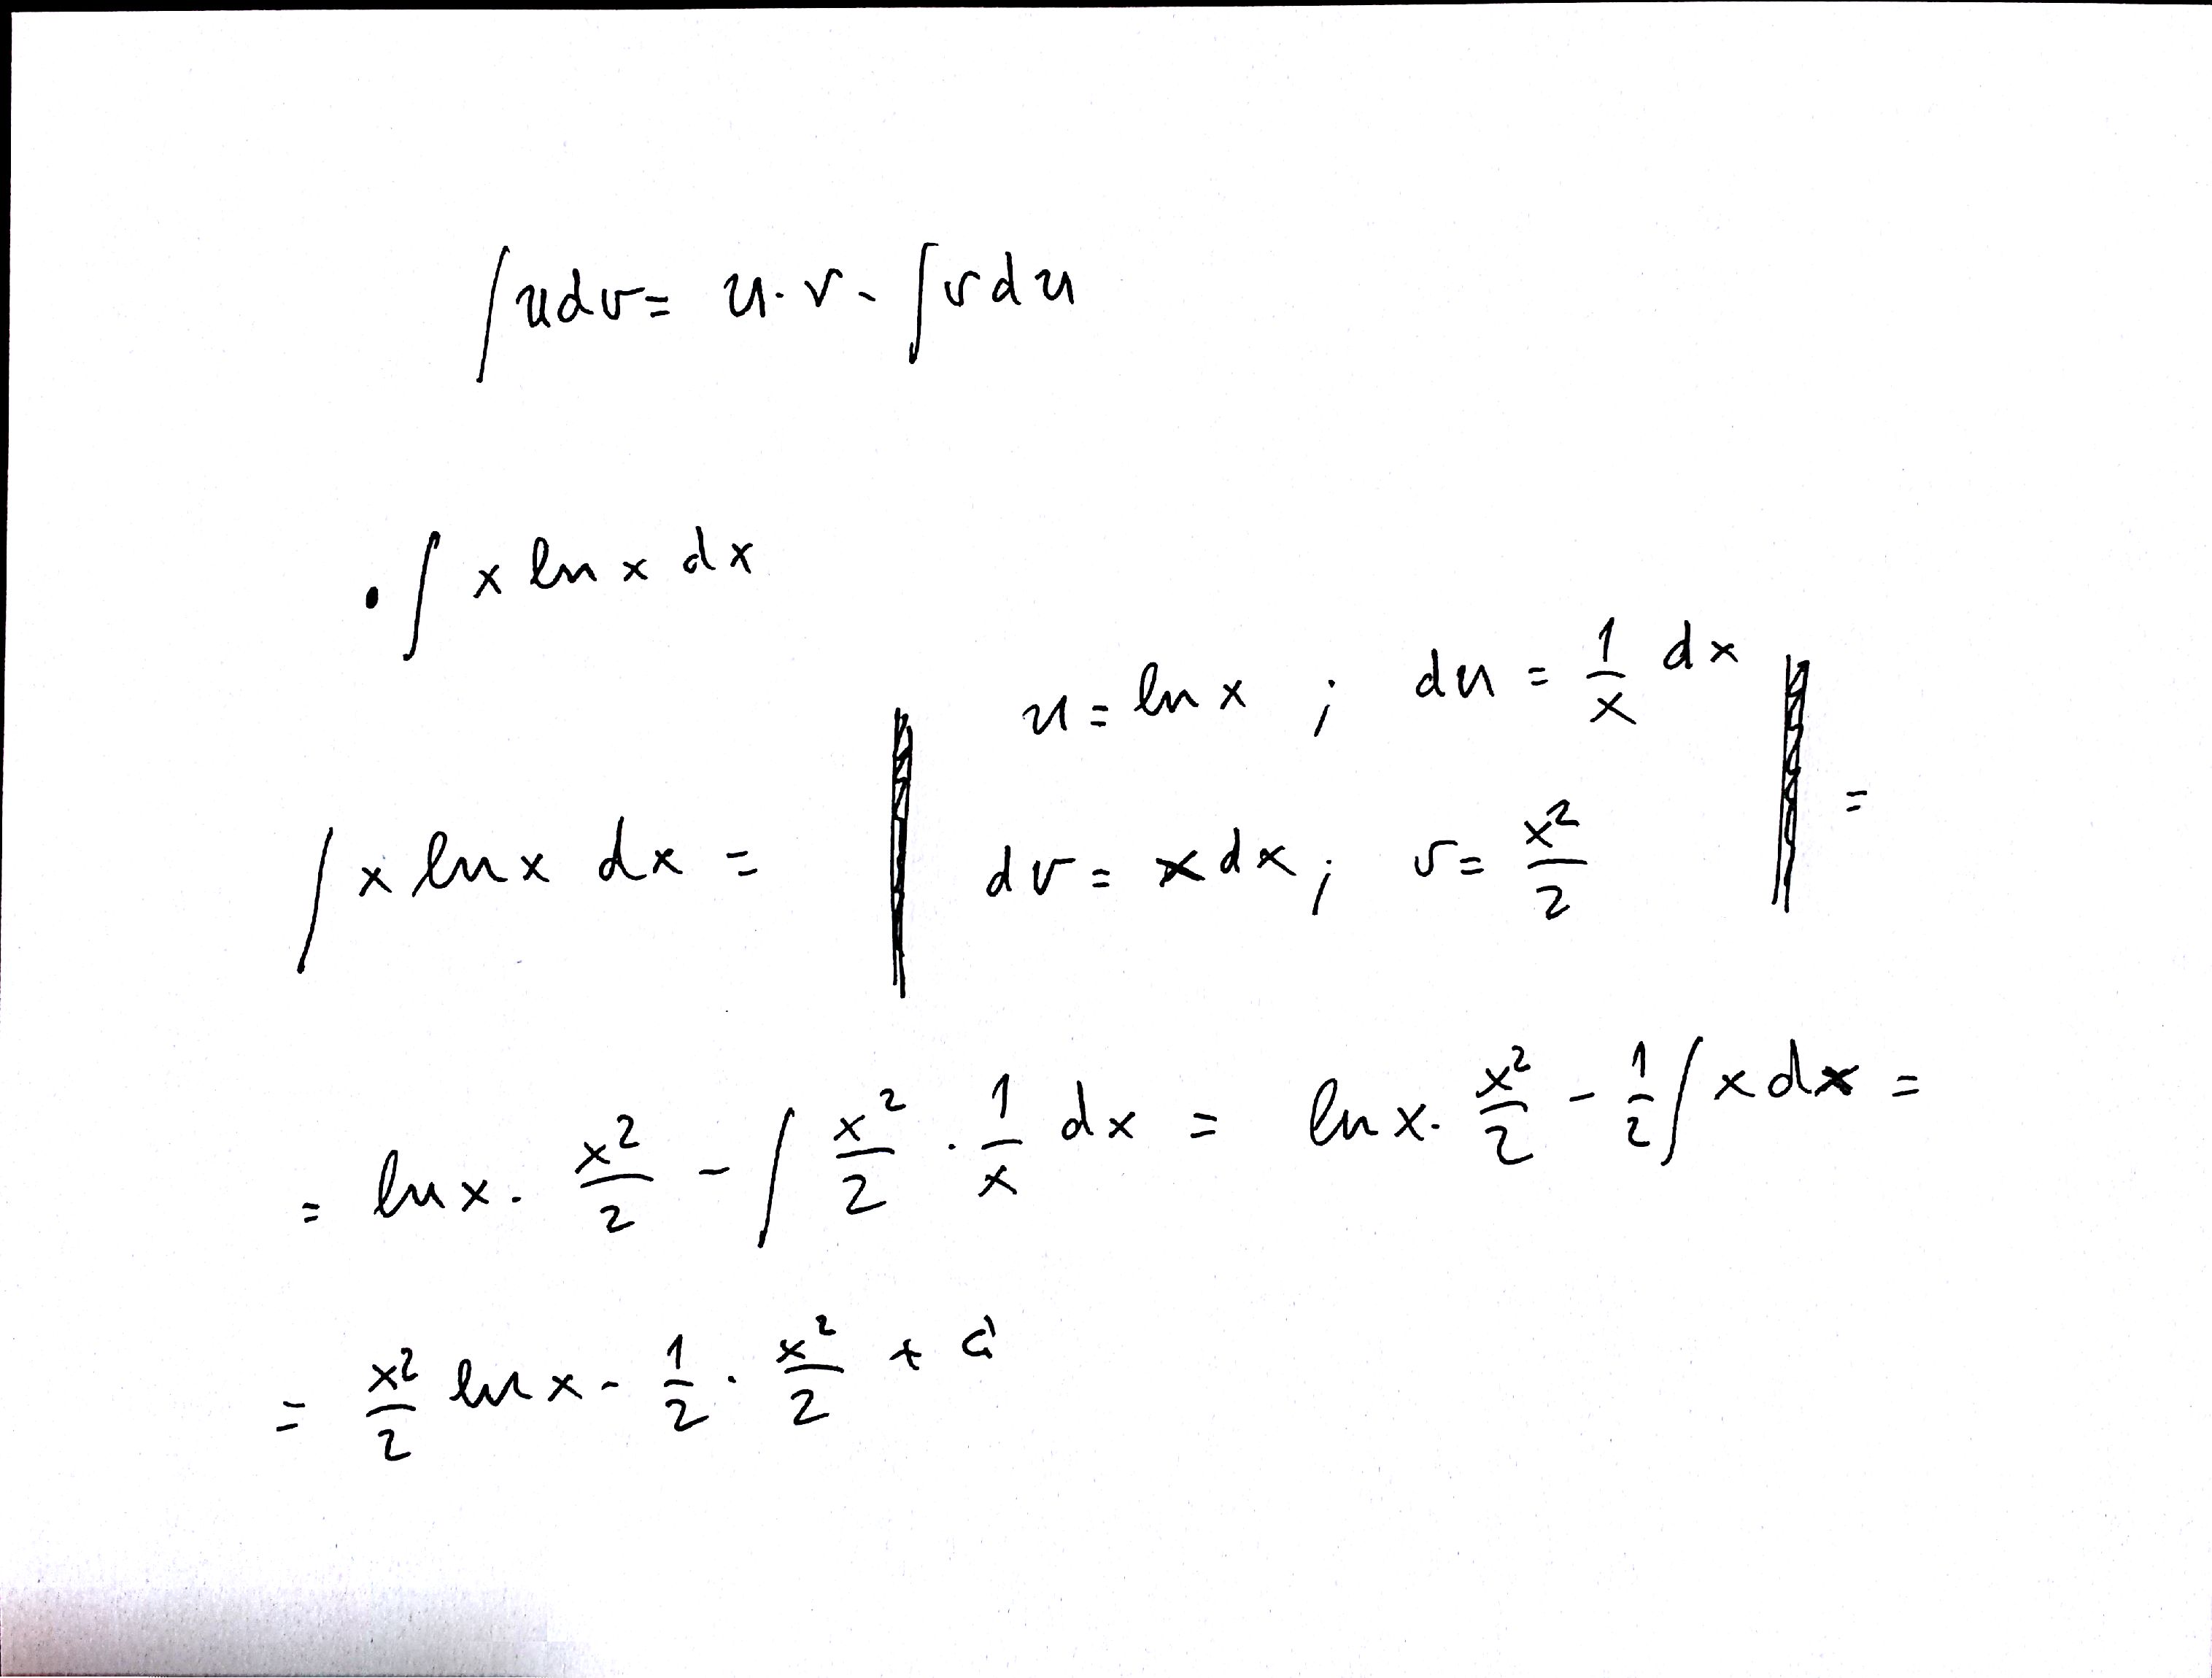 ∫udv = u·v - ∫vdu
• ∫ x ln x dx
∫ x ln x dx = ‖ u = ln x ; du = 1/x dx
dv = x dx ; v = x²/2 ‖ =
= ln x · x²/2 - ∫ x²/2 · 1/x dx = ln x · x²/2 - 1/2 ∫ x dx =
= x²/2 ln x - 1/2 · x²/2 + C